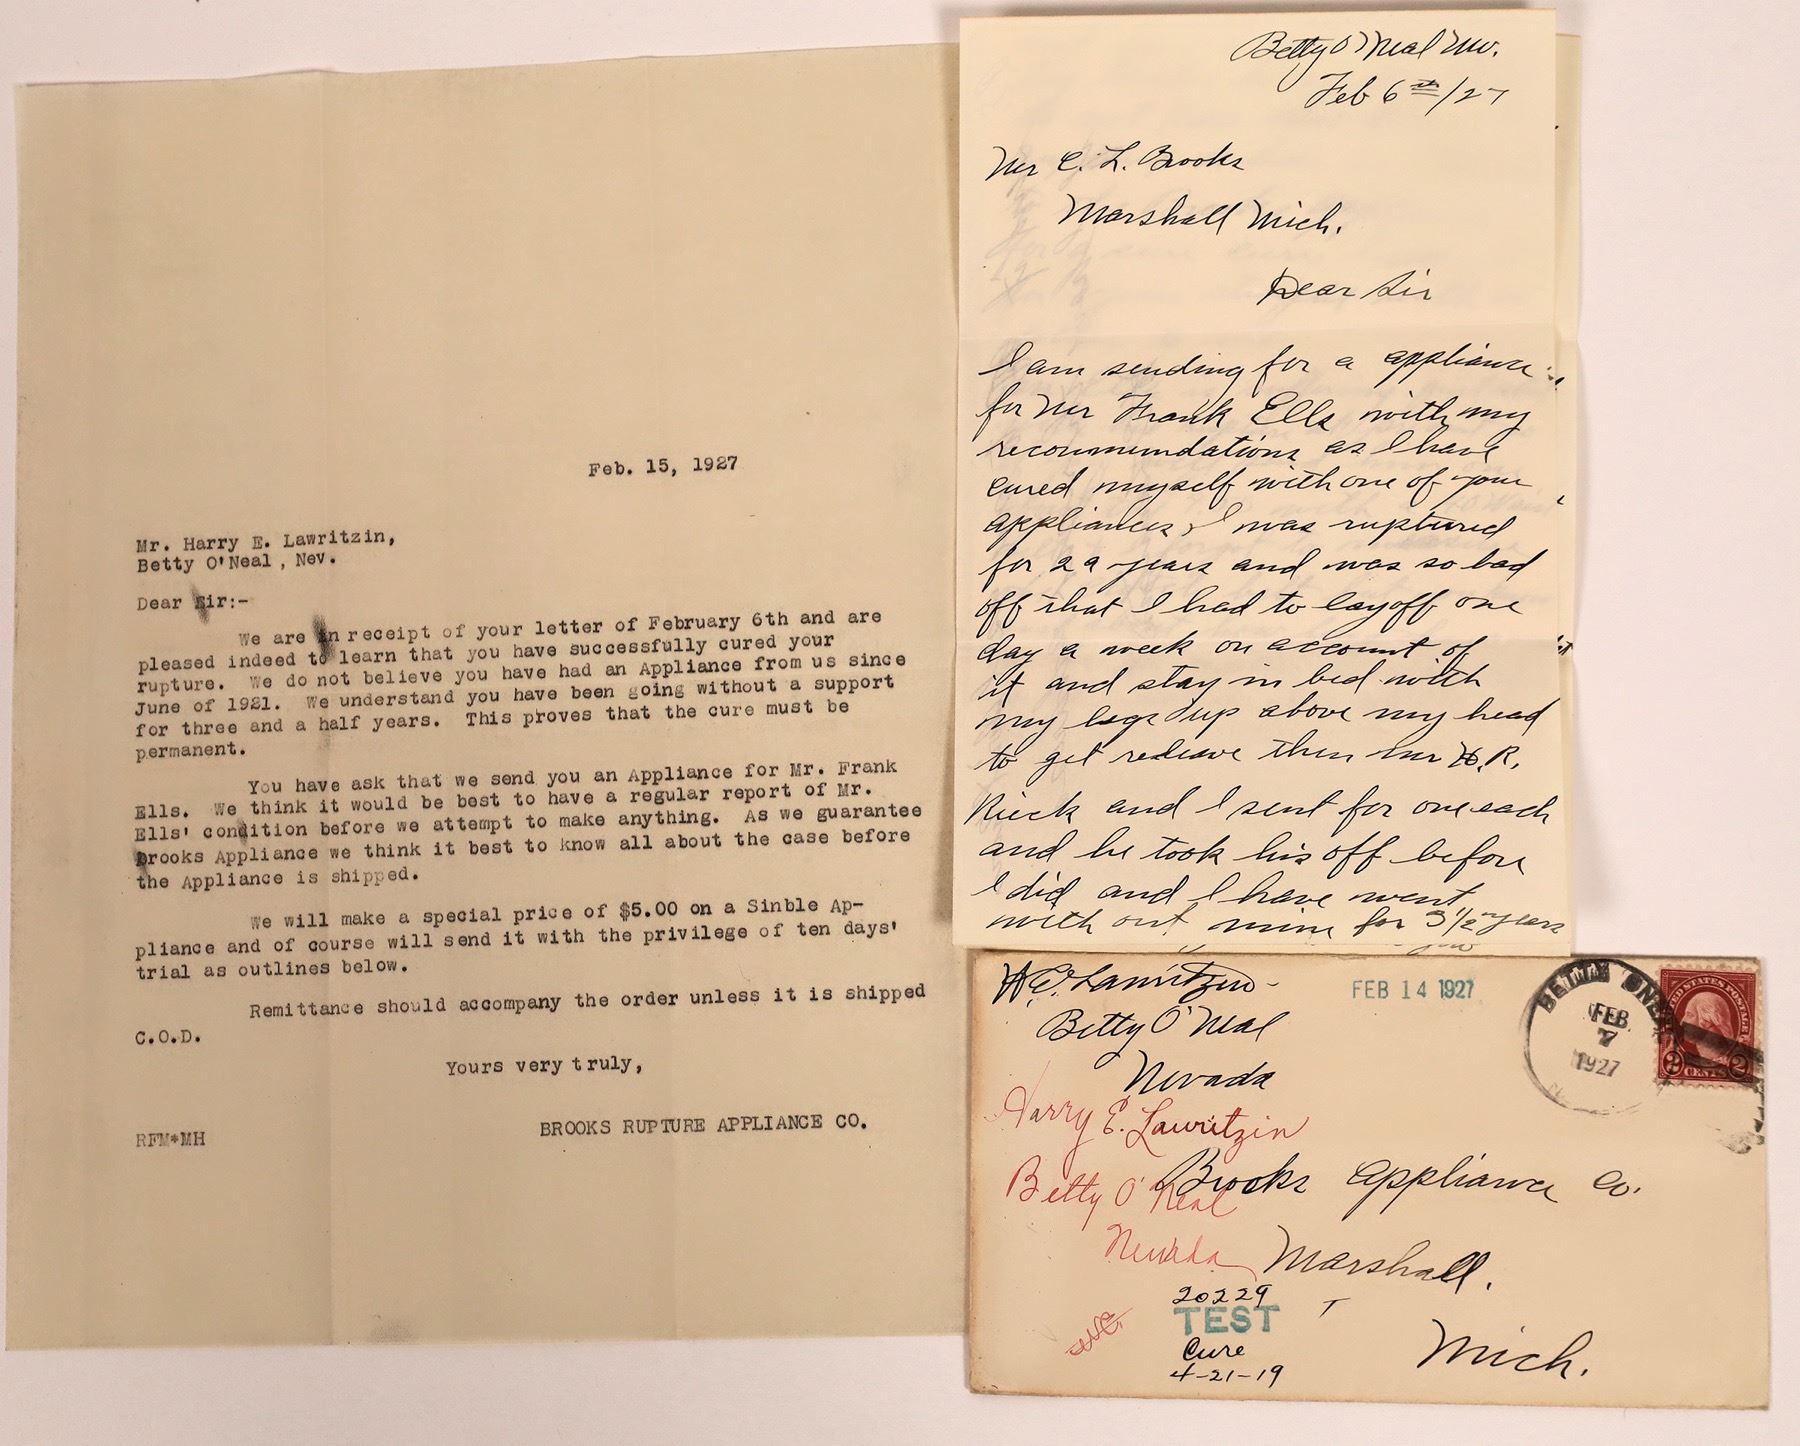 Feb. 15, 1927
Mr. Harry E. Lawritzin,
Betty O'Neal , Nev.
Dear Sir:-
We are in receipt of your letter of February 6th and are
pleased indeed to learn that you have successfully cured your
rupture. We do not believe you have had an Appliance from us since
June of 1921. We understand you have been going without a support
for three and a half years. This proves that the cure must be
permanent.
You have ask that we send you an Appliance for Mr. Frank
Ells. We think it would be best to have a regular report of Mr.
Ells' condition before we attempt to make anything. As we guarantee
Brooks Appliance we think it best to know all about the case before
the Appliance is shipped.
We will make a special price of $5.00 on a Sinble Ap-
pliance and of course will send it with the privilege of ten days'
trial as outlines below.
Remittance should accompany the order unless it is shipped
C.O.D.
Yours very truly,
BROOKS RUPTURE APPLIANCE CO.
RFM*MH
Betty O'Neal Nev.
Feb 6th/27
Mr C. L. Brooks
Marshall Mich.
Dear Sir
I am sending for a appliance
for Mr Frank Ells with my
recommendations as I have
cured myself with one of your
appliances, I was ruptured
for 29 years and was so bad
off that I had to layoff one
day a week on account of
it and stay in bed with
my legs up above my head
to get releave then Mr H. R.
Rieck and I sent for one each
and he took his off before
I did and I have went
with out mine for 3 1/2 years
H.E. Lawritzin
Betty O'Neal
Nevada
FEB 14 1927
BETTY ONEAL
FEB
7
1927
UNITED STATES POSTAGE
2 CENTS 2
Harry E. Lawritzin
Betty O'Neal
Nevada
Brooks Appliance Co.
Marshall.
Mich.
20229
TEST
Cure
4-21-19